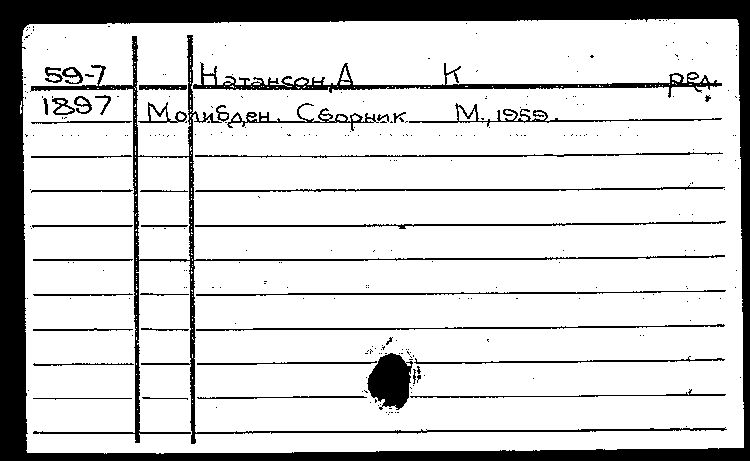 59-7 Натансон, А К ред.
1897 Молибден. Сборник М., 1959.